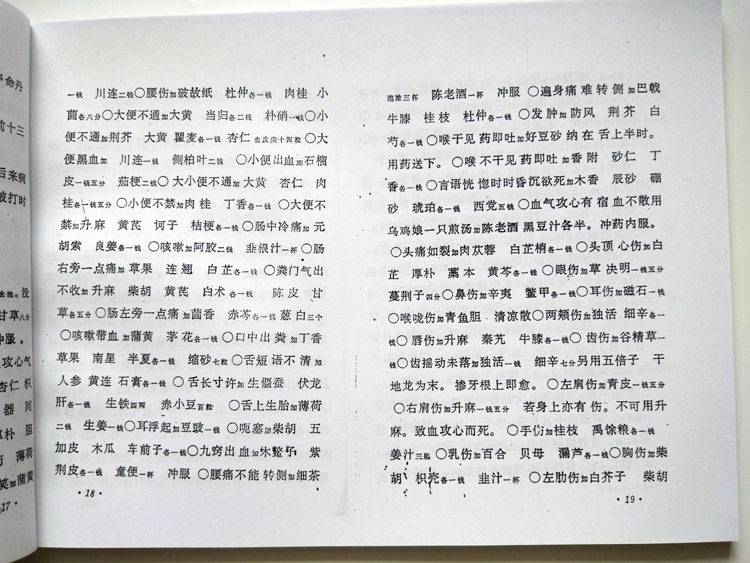 命丹
前十三
后来病
打时
没
甘草八分
冲服。
攻心气
杏仁 枳
器 同
朴 胆
薄荷
加蒲黄
·17·
一钱 川连二钱 〇腰伤加破故纸 杜仲各一钱 肉桂 小
茴各八分 〇大便不通加大黄 当归各二钱 朴硝一钱 〇小
便不通加荆芥 大黄 瞿麦各一钱 杏仁去皮尖十四粒 〇大
便黑血加 川连一钱 侧柏叶二钱 〇小便出血加石榴
皮一钱五分 茄梗二钱 〇大小便不通加大黄 杏仁 肉
桂各一钱五分 〇小便不禁加肉桂 丁香各一钱 〇大便不
禁加升麻 黄芪 诃子 桔梗各一钱 〇肠中冷痛加元
胡索 良姜各一钱 〇咳嗽加阿胶二钱 韭根汁一杯 〇肠
右旁一点痛加草果 连翘 白芷各一钱 〇粪门气出
不收加升麻 柴胡 黄芪 白术各一钱 陈皮 甘
草各五分 〇肠左旁一点痛加茴香 赤苓各一钱 葱白三个
〇咳嗽带血加蒲黄 茅花各一钱 〇口中出粪加丁香
草果 南星 半夏各一钱 缩砂七粒 〇舌短语不清加
人参 黄连 石膏各一钱 〇舌长寸许加生僵蚕 伏龙
肝各一钱 生铁四两 赤小豆百粒 〇舌上生胎加薄荷
二钱 生姜一钱 〇耳浮起加豆豉一钱 〇呃塞加柴胡 五
加皮 木瓜 车前子各一钱 〇九窍出血加木鳖子 紫
荆皮各一钱 童便一杯 冲服 〇腰痛不能转侧加细茶
·18·
泡浓三杯 陈老酒一杯 冲服 〇遍身痛难转侧加巴戟
牛膝 桂枝 杜仲各一钱 〇发肿加防风 荆芥 白
芍各一钱 〇喉干见药即吐加好豆砂纳在舌上半时。
用药送下。〇喉不干见药即吐加香附 砂仁 丁
香各一钱 〇言语恍惚时时昏沉欲死加木香 辰砂 硼
砂 琥珀各一钱 西党五钱 〇血气攻心有宿血不散用
乌鸡娘一只煎汤加陈老酒黑豆汁各半。冲药内服。
〇头痛如裂加肉苁蓉 白芷梢各一钱 〇头顶心伤加白
芷 厚朴 藁本 黄芩各一钱 〇眼伤加草决明一钱五分
蔓荆子四分 〇鼻伤加辛夷 鳖甲各一钱 〇耳伤加磁石一钱
〇喉咙伤加青鱼胆 清凉散 〇两颊伤加独活 细辛各一
钱 〇唇伤加升麻 秦艽 牛膝各一钱 〇齿伤加谷精草一
钱 〇齿摇动未落加独活一钱 细辛七分另用五倍子 干
地龙为末。掺牙根上即愈。〇左肩伤加青皮一钱五分
〇右肩伤加升麻一钱五分 若身上亦有伤。不可用升
麻。致血攻心而死。〇手伤加桂枝 禹馀粮各一钱
姜汁三匙 〇乳伤加百合 贝母 漏芦各一钱 〇胸伤加柴
胡 枳壳各一钱 韭汁一杯 〇左肋伤加白芥子 柴胡
·19·